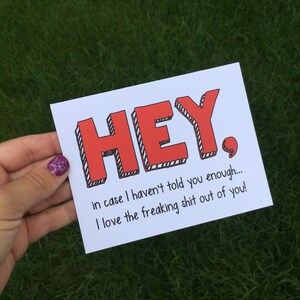 HEY,
in case I haven't told you enough...
I love the freaking shit out of you!